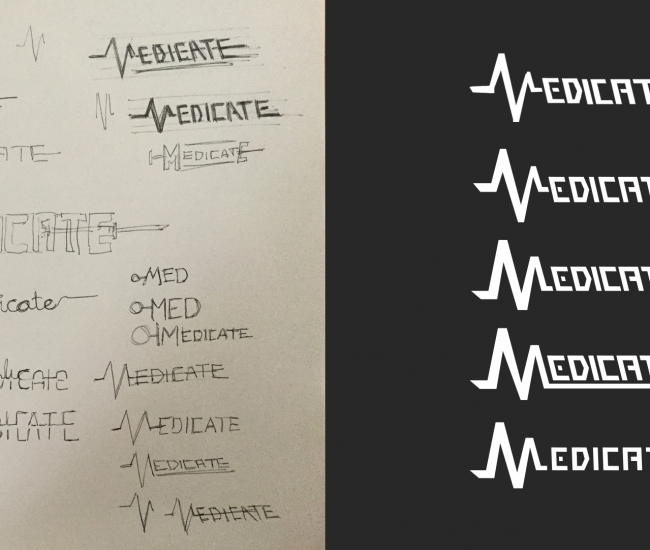 MEDICATE
MEDICATE
ATE
MEDICATE
ICATE
MED
icate
MED
MEDICATE
MEDICATE
MEDICATE
MEDICATE
MEDICATE
MEDICAT
MEDICAT
MEDICAT
MEDICAT
MEDICAT